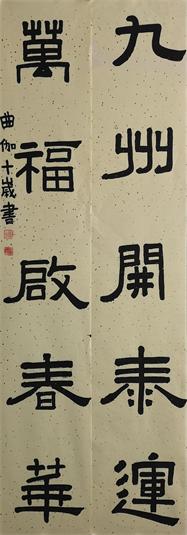 九州開泰運
萬福啟春華
曲伽十歲書